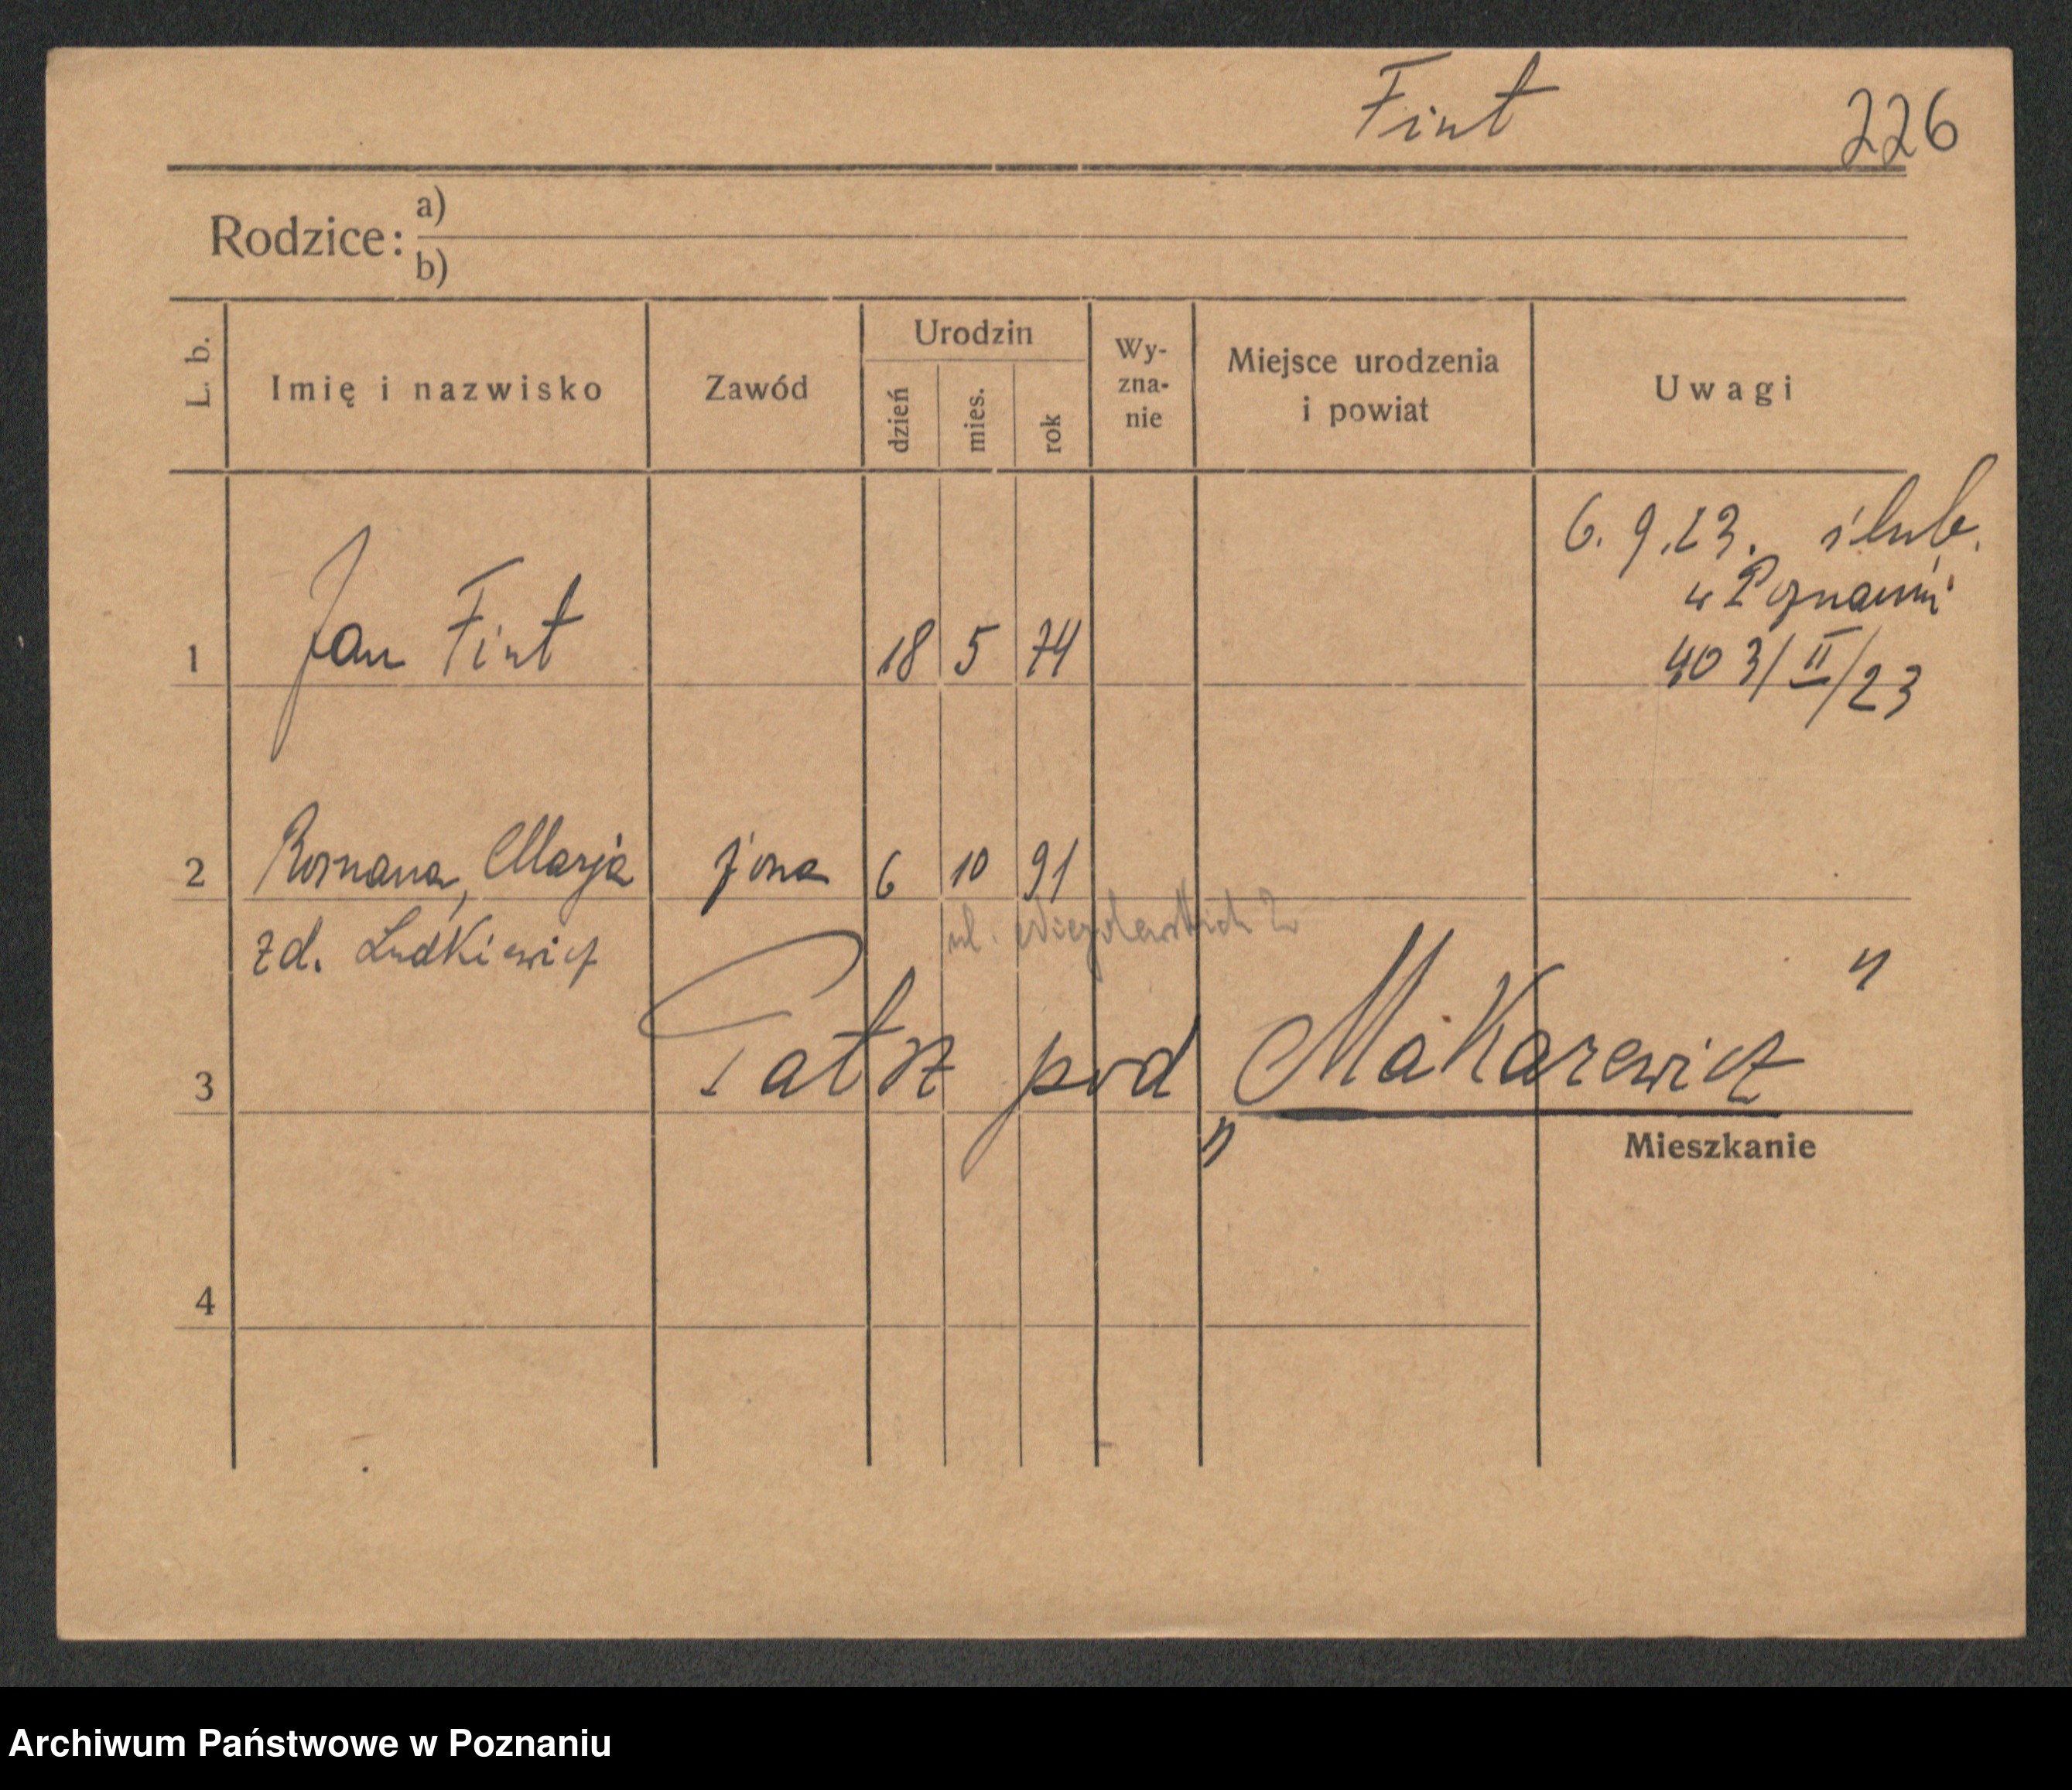 Fint 226
Rodzice: a)
b)
L. b. Imię i nazwisko Zawód Urodzin dzień mies. rok Wy-zna-nie Miejsce urodzenia i powiat Uwagi
6. 9. 23. ślub.
w Poznaniu
403/II/23
1 Jan Fint 18 5 74
2 Romana, Marja żona 6 10 91
zd. Ludkiewicz
ul. Niegolewskich 2
3 Patrz pod "Makarewicz"
Mieszkanie
4
Archiwum Państwowe w Poznaniu